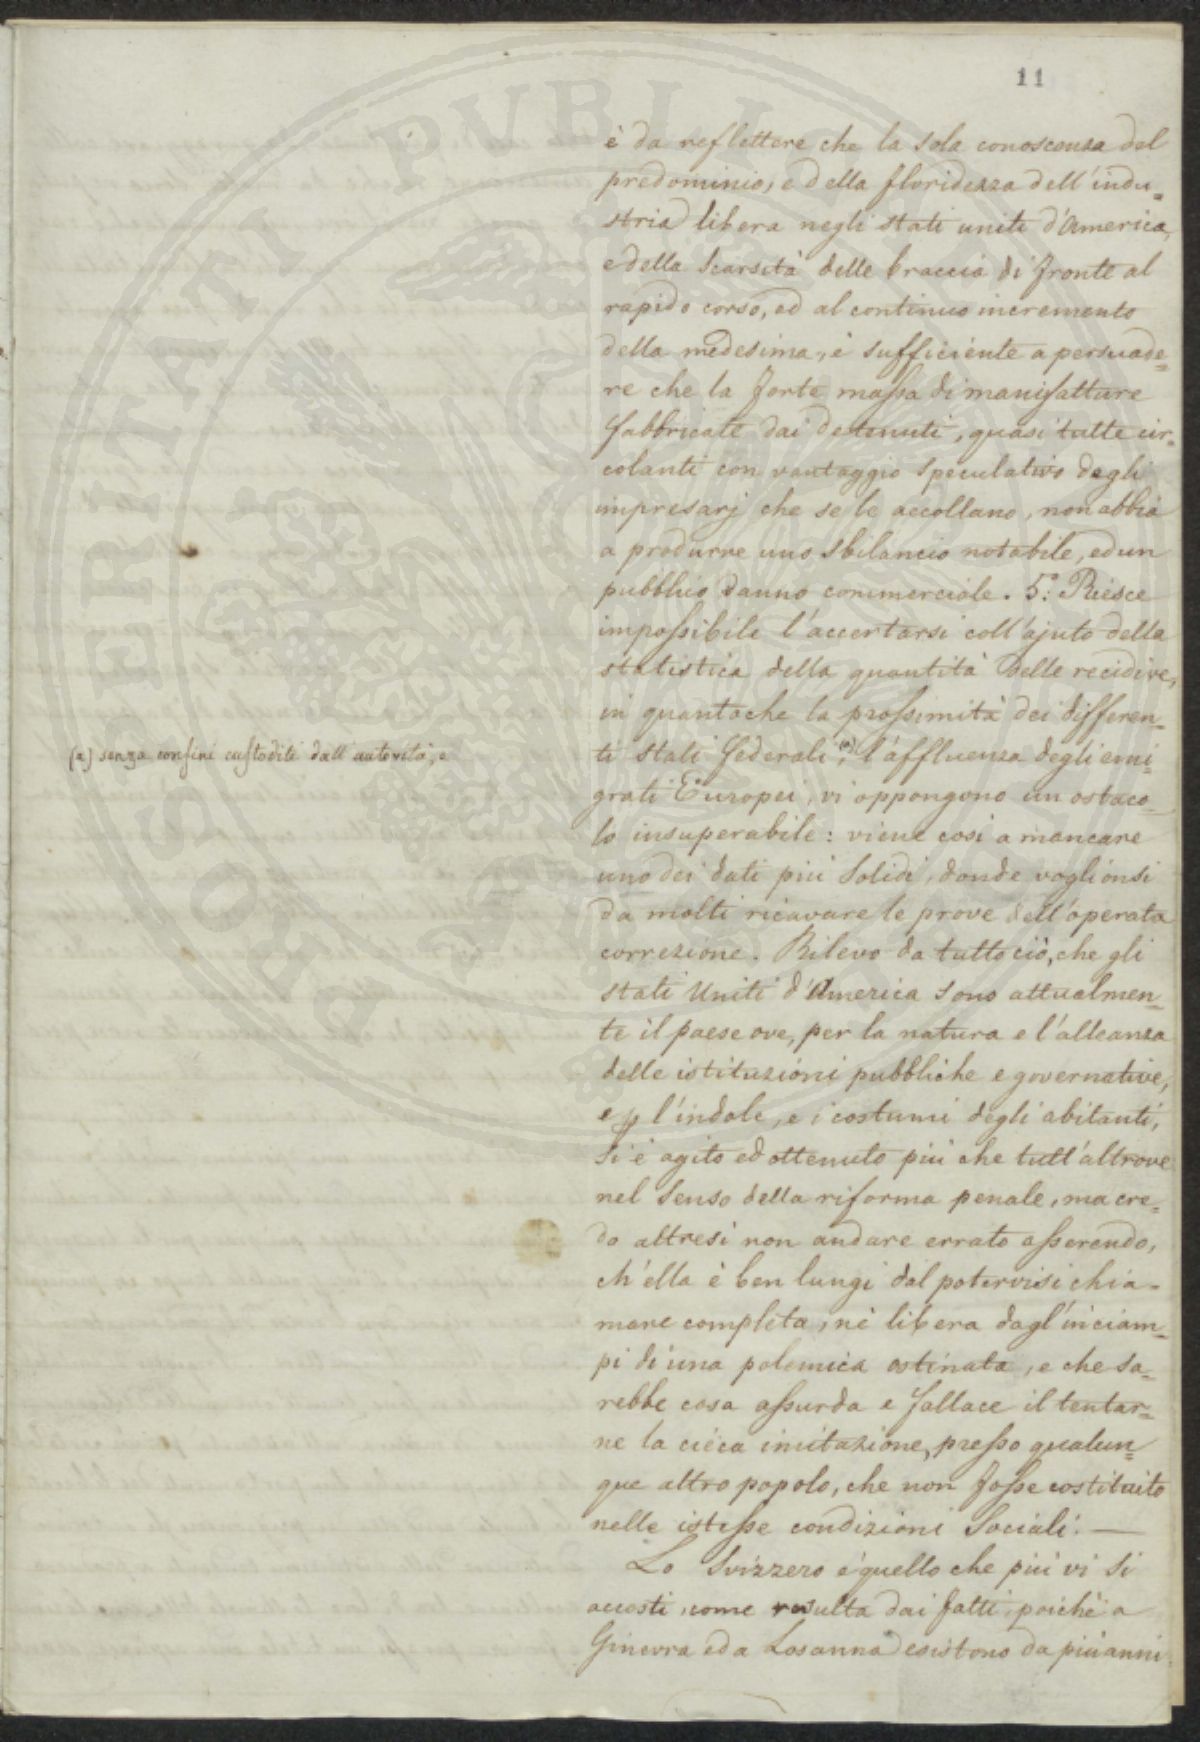 11
è da reflettere che la sola conoscenza del
predominio, e della floridezza dell'indu=
stria libera negli stati uniti d'America,
e della scarsità delle braccia di fronte al
rapido corso, ed al continuo incremento
della medesima, è sufficiente a persuade=
re che la forte massa di manifatture
fabbricate dai detenuti, quasi tutte cir=
colanti con vantaggio speculativo degli
impresarj che se le accollano, non abbia
a produrre uno sbilancio notabile, ed un
pubblico danno commerciale. 5.° Riesce
impossibile l'accertarsi coll'ajuto della
statistica della quantità delle recidive,
in quantoche la prossimità dei differen=
ti stati federali, (a) l'affluenza degli emi=
(a) senza confini custoditi dall'autorità, e
grati Europei, vi oppongono un ostaco=
lo insuperabile: viene così a mancare
uno dei dati più solidi, donde voglionsi
da molti ricavare le prove dell'operata
correzione. Rilevo da tutto ciò, che gli
stati Uniti d'America sono attualmen=
te il paese ove, per la natura e l'alleanza
delle istituzioni pubbliche e governative,
e p l'indole, e i costumi degli abitanti,
si è agito ed ottenuto più che tutt'altrove
nel senso della riforma penale, ma cre=
do altresì non andare errato asserendo,
ch'ella è ben lungi dal potervisi chia=
mare completa, nè libera dagl'inciam=
pi di una polemica ostinata, e che sa=
rebbe cosa assurda e fallace il tentar=
ne la cieca imitazione, presso qualun=
que altro popolo, che non fosse costituito
nelle istesse condizioni sociali. —
Lo svizzero è quello che più vi si
accosti, come resulta dai fatti, poichè a
Ginevra ed a Losanna esistono da più anni
PROSPERITATI PVBLICAE